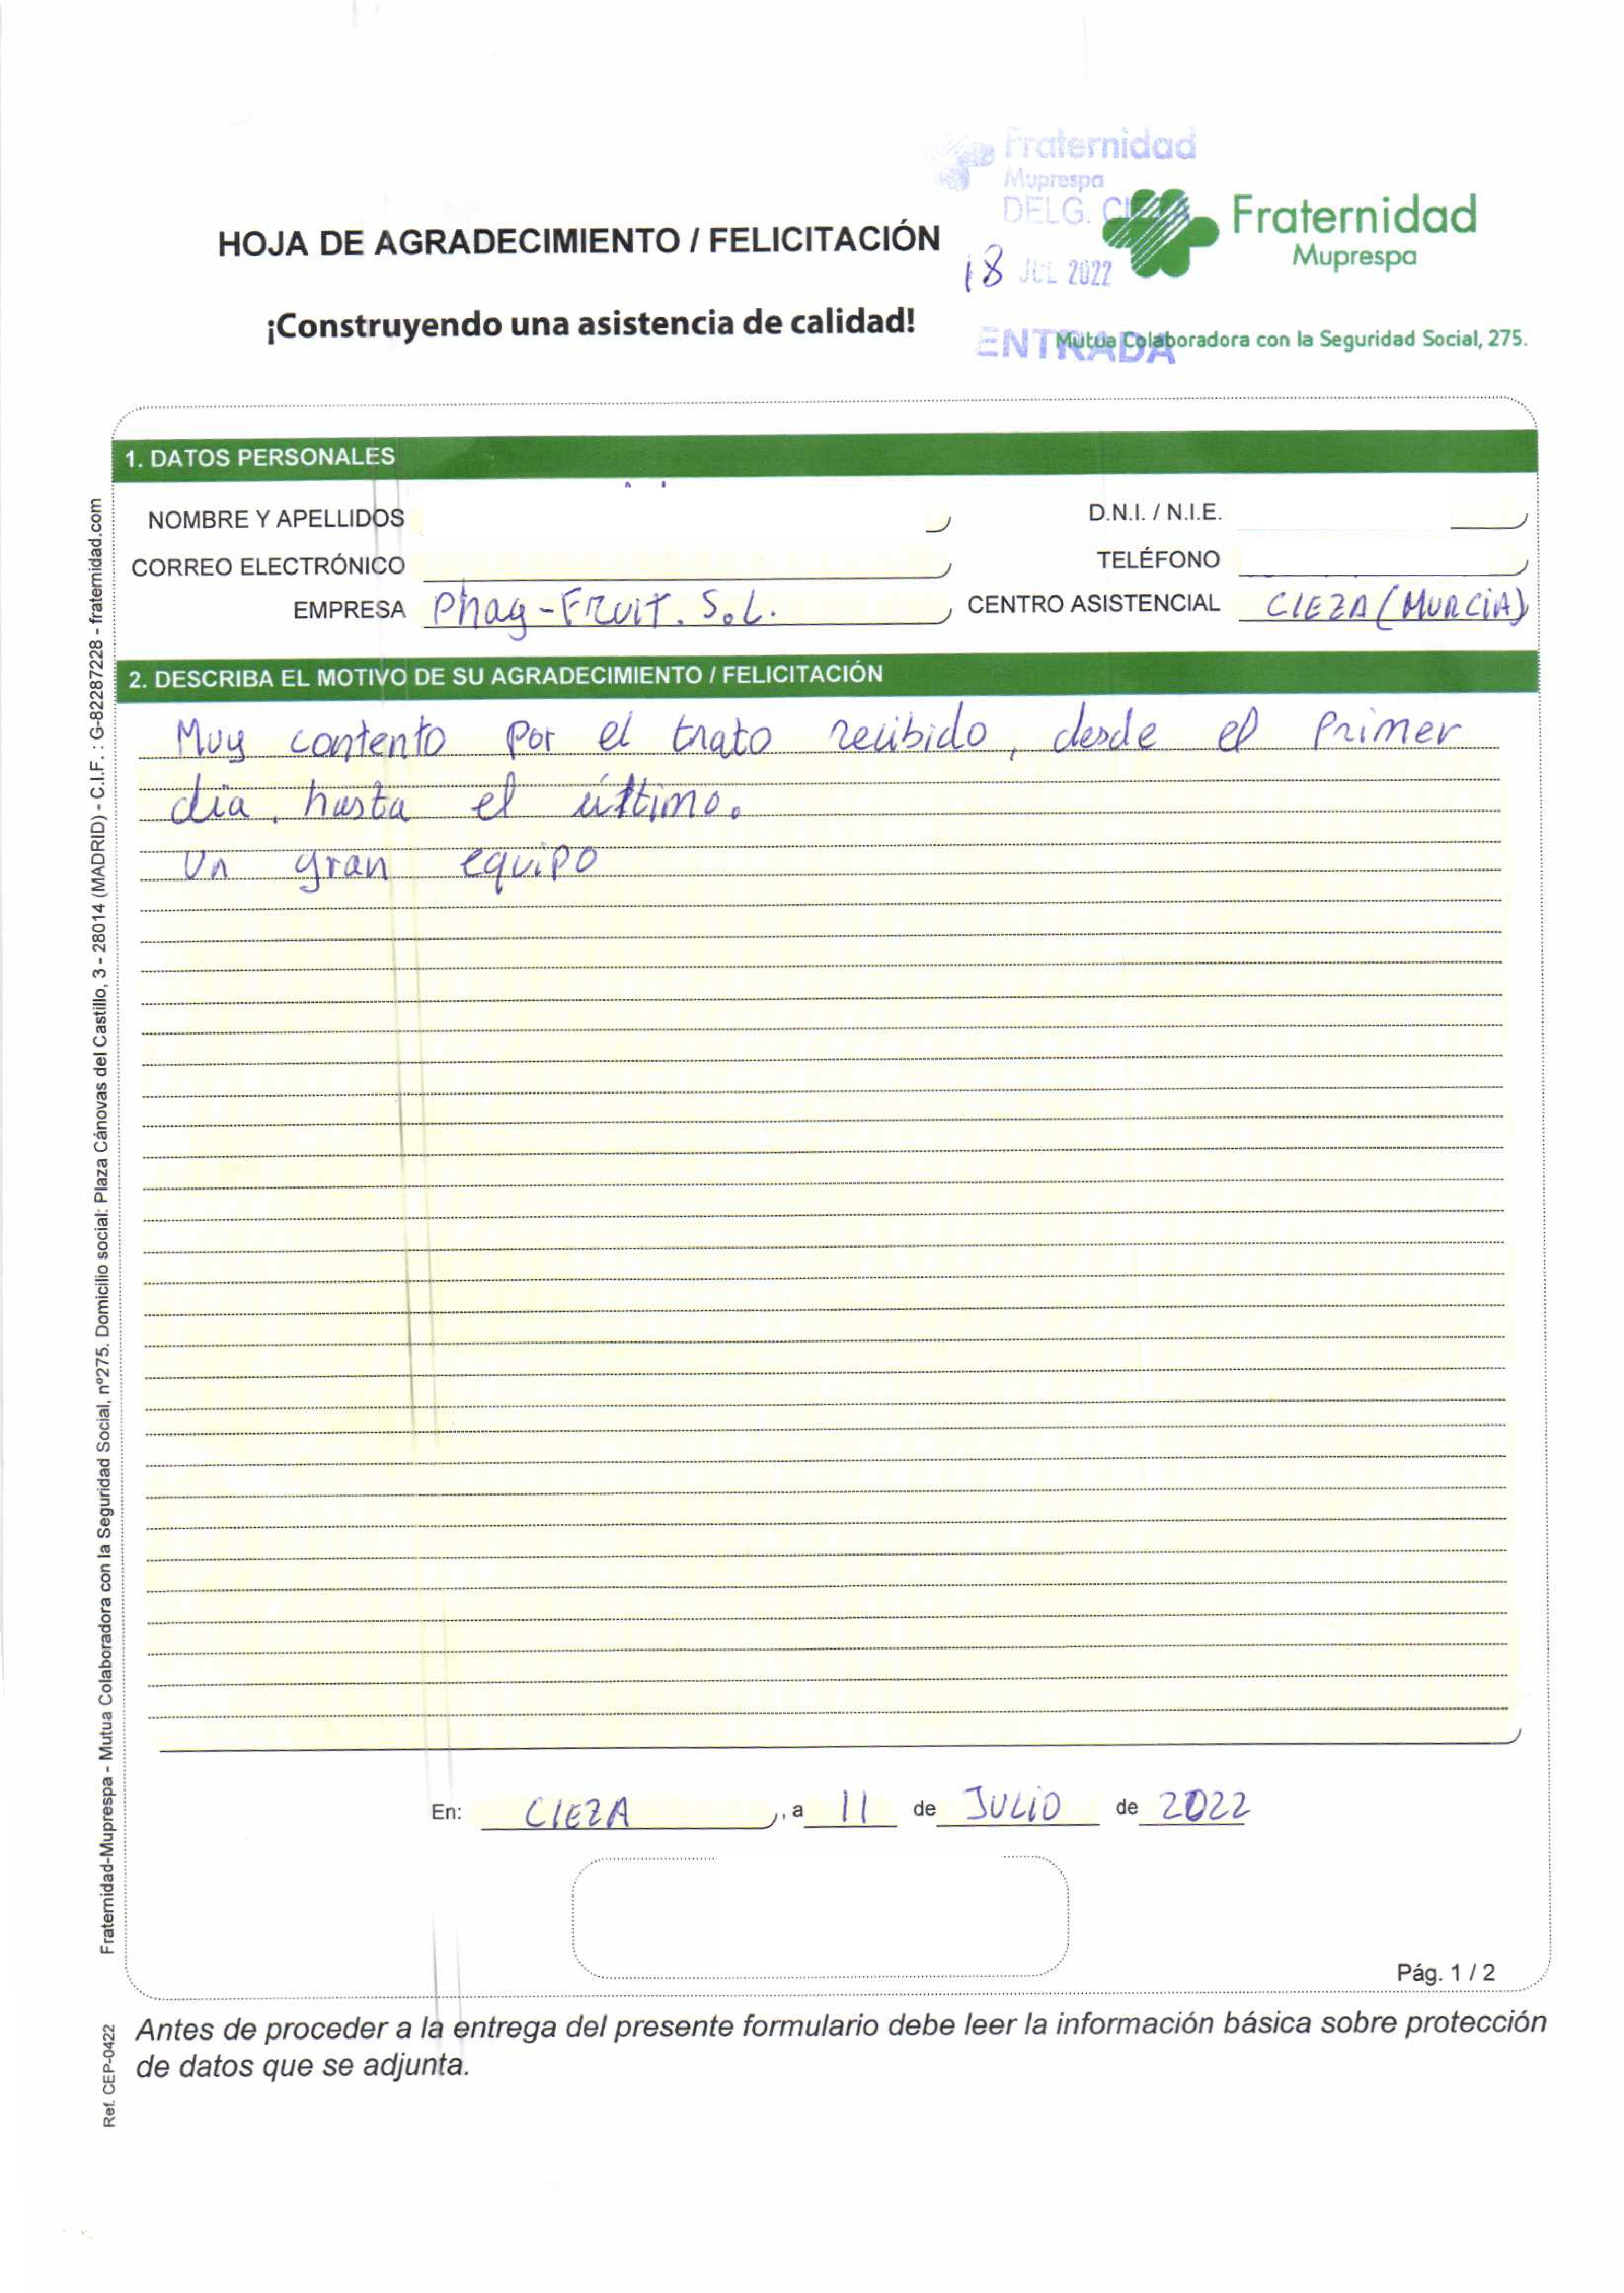 Fraternidad
Muprespa
DELG. CI
18 JUL 2022
ENTRADA
HOJA DE AGRADECIMIENTO / FELICITACIÓN
¡Construyendo una asistencia de calidad!
Fraternidad
Muprespa
Mutua Colaboradora con la Seguridad Social, 275.
1. DATOS PERSONALES
NOMBRE Y APELLIDOS D.N.I. / N.I.E.
CORREO ELECTRÓNICO TELÉFONO
EMPRESA Phag-Fruit. S.L. CENTRO ASISTENCIAL CIEZA (MURCIA)
2. DESCRIBA EL MOTIVO DE SU AGRADECIMIENTO / FELICITACIÓN
Muy contento por el trato recibido, desde el Primer
dia, hasta el último.
Un gran equipo
En: CIEZA, a 11 de JULIO de 2022
Pág. 1 / 2
Antes de proceder a la entrega del presente formulario debe leer la información básica sobre protección
de datos que se adjunta.
Fraternidad-Muprespa - Mutua Colaboradora con la Seguridad Social, nº275. Domicilio social: Plaza Cánovas del Castillo, 3 - 28014 (MADRID) - C.I.F. : G-82287228 - fraternidad.com
Ref. CEP-0422